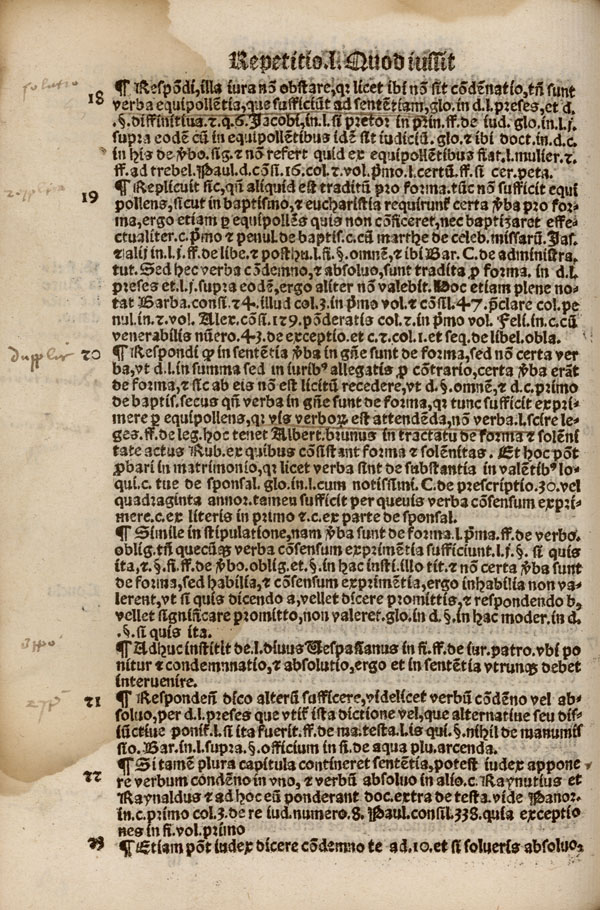 Repetitio.l.Quod iussit
solutio
18
¶ Respōdi, illa iura nō obstare, qr licet ibi nō sit cōdēnatio, tñ sunt
verba equipollētia, que sufficiūt ad sentētiam, glo. in d.l. preses, et d.
.§. diffinitiua. ⁊. q. 6. Jacobi, in.l. si pretor in prin. ff. de iud. glo. in.l.j.
supra eodē cū in equipollētibus idē sit iudiciū. glo. ⁊ ibi doct. in. d. c.
in his de ṽbo. sig. ⁊ nō refert quid ex equipollētibus fiat. l. mulier. ⁊.
ff. ad trebel. Paul. d. cōsi. 16. col. ⁊. vol. p̄mo. l. certū. ff. si cer. peta.
19
¶ Replicuit sic, qñ aliquid est traditū pro forma. tūc nō sufficit equi
pollens, sicut in baptismo, ⁊ eucharistia requirunt̄ certa ṽba pro for-
ma, ergo etiam p equipollēs quis non cōficeret, nec baptizaret effe-
ctualiter. c. p̄mo ⁊ penul de baptis. c. cū marthe de celeb. missarū. Jas.
⁊ alij in. l. j. ff. de libe. ⁊ posthu. l. fi. §. omnē, ⁊ ibi Bar. C. de administra.
tut. Sed hec verba cōdemno, ⁊ absoluo, sunt tradita p forma. in d. l.
preses et. l. j. supra eodē, ergo aliter nō valebit. Hoc etiam plene no-
tat Barba. consi. ⁊ 4. illud col. 3. in p̄mo vol. ⁊ cōsil. 47. p̄clare col. pe
nul. in. ⁊. vol. Alex. cōsi. 129. pōderatis col. ⁊. in p̄mo vol. Feli. in. c. cū
venerabilis nūero. 43. de exceptio. et c. ⁊. col. 1. et seq. de libel. obla.
dupplir
20
¶ Respondi q̄ in sentētia ṽba in gñe sunt de forma, sed nō certa ver
ba, vt d. l. in summa sed in iurib⁹ allegatis p cōtrario, certa ṽba erāt
de forma, ⁊ sic ab eis nō est licitū recedere, vt d. §. omnē, ⁊ d. c. primo
de baptis. secus qñ verba in gñe sunt de forma, qr tunc sufficit expri-
mere p equipollens, qr vis verboꝝ est attendēda, nō verba. l. scire le-
ges. ff. de leg. hoc tenet Albert. brunus in tractatu de forma ⁊ solēni
tate actus Rub. ex quibus cōsistant forma ⁊ solēnitas. Et hoc pōt
pbari in matrimonio, qr licet verba sint de substantia in valētib⁹ lo-
qui. c. tue de sponsal. glo. in. l. cum notissimi. C. de prescriptio. 30. vel
quadraginta annor. tamen sufficit per queuis verba cōsensum expri-
mere. c. ex literis in primo ⁊. c. ex parte de sponsal.
¶ Simile in stipulatione, nam ṽba sunt de forma. l. p̄ma. ff. de verbo.
oblig. tñ quecūq̄ verba cōsensum exprimētia sufficiunt. l. j. §. si quis
ita, ⁊. §. fi. ff. de ṽbo. oblig. et. §. in hac insti. illo tit. ⁊ nō certa ṽba sunt
de forma, sed habilia, ⁊ cōsensum exprimētia, ergo inhabilia non va-
lerent, vt si quis dicendo a, vellet dicere promittis, ⁊ respondendo b,
vellet significare promitto, non valeret. glo. in d. §. in hac moder. in d.
.§. si quis ita.
¶ Adhuc institit de. l. diuus Uespasianus in fi. ff. de iur. patro. vbi po
nitur ⁊ condemnatio, ⁊ absolutio, ergo et in sentētia vtrunq̄ debet
interuenire.
21
¶ Respondeñ dico alterū sufficere, videlicet verbū cōdēno vel ab-
soluo, per d. l. preses que vtit̄ ista dictione vel, que alternatiue seu dis-
iūctiue ponit̄. l. si ita fuerit. ff. de ma. testa. l. is qui. §. nihil de manumis
sio. Bar. in. l. supra. §. officium in fi. de aqua plu. arcenda.
22
¶ Si tamē plura capitula contineret sententia, potest iudex appone
re verbum condēno in vno, ⁊ verbū absoluo in alio. c. Raynutius et
Raynaldus ⁊ ad hoc eū ponderant doc. extra de testa. vide Panor.
in. c. primo col. 3. de re iud. numero. 8. Paul. consil. 338. quia exceptio
nes in fi. vol. primo
23
¶ Etiam pōt iudex dicere cōdemno te ad. 10. et si solueris absoluo,